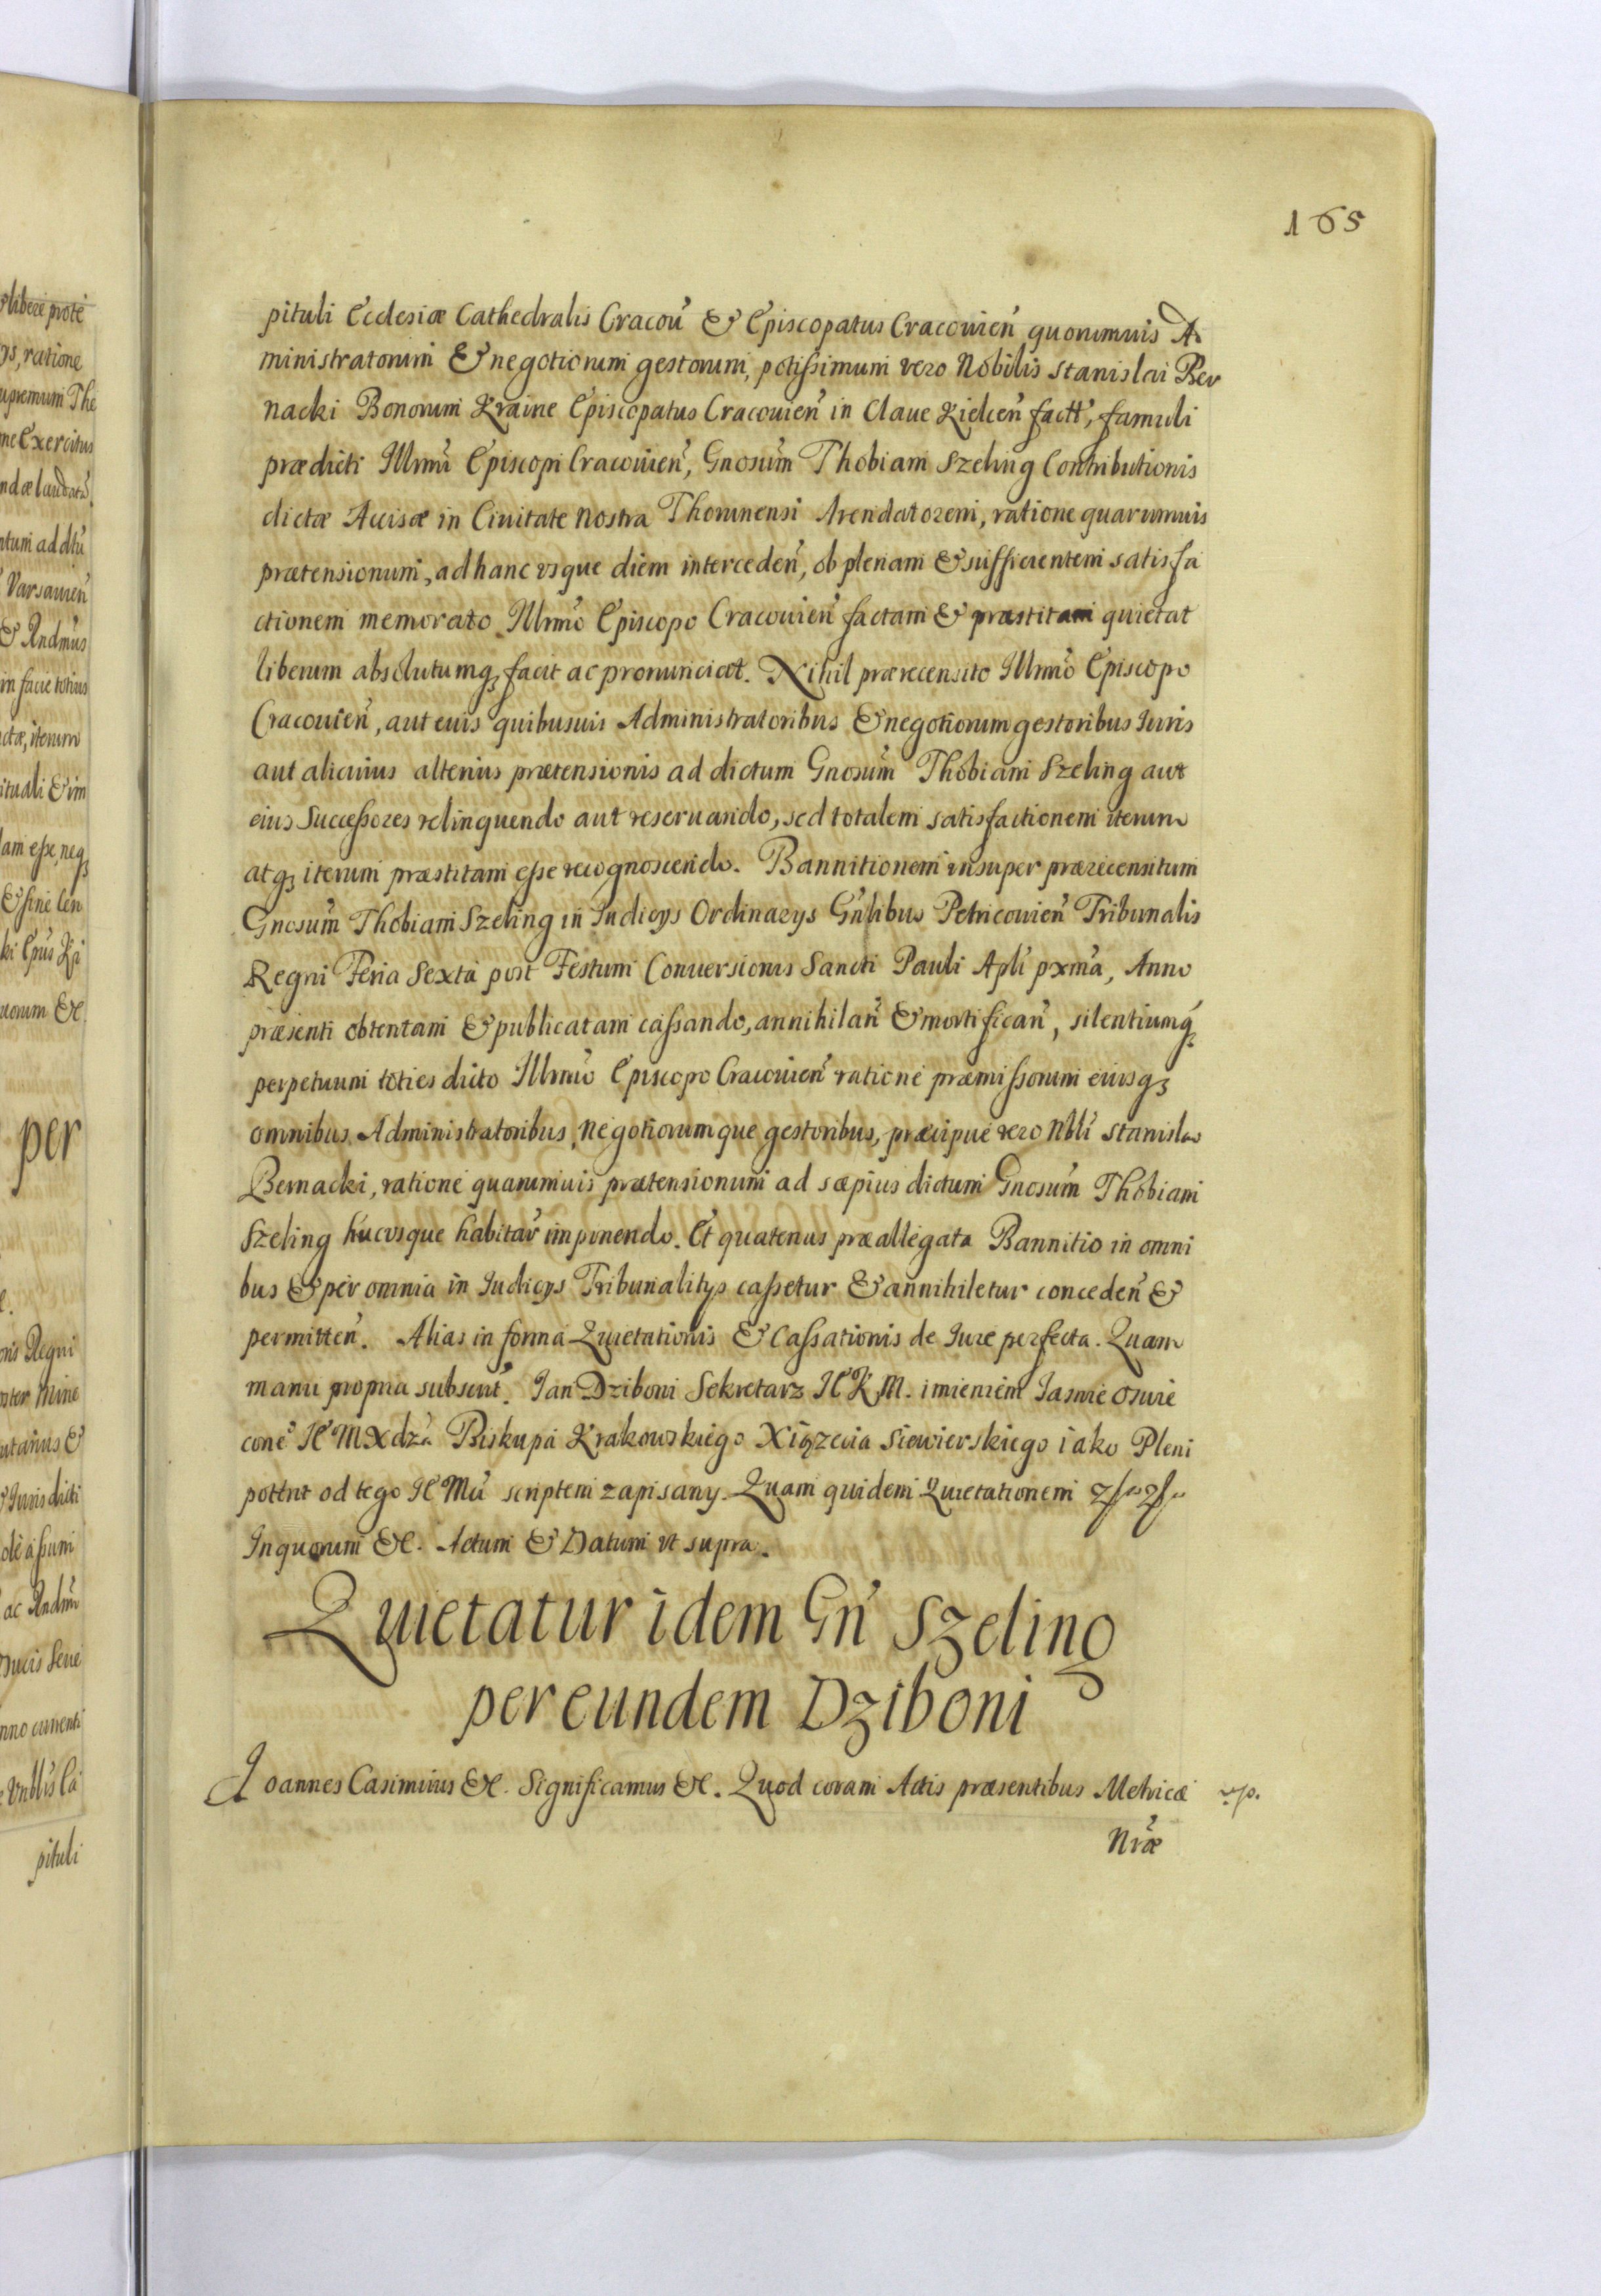 165
pituli Ecclesiæ Cathedralis Cracoũ & Episcopatus Cracouieñ quorumuis Ad
ministratorum & negotiorum gestorum, potissimum vero Nobilis Stanislai Ber
nacki Bonorum Kraine Episcopatus Cracouieñ in Claue Kielceñ factt, famuli
prædicti Illrm̃i Episcopi Cracouieñ, Gnosum̃ Thobiam Szeling Contributionis
dictæ Accisæ in Ciuitate Nostra Thorunensi Arendatorem, ratione quarumuis
prætensionum, ad hanc vsque diem intercedeñ, ob plenam & sufficientem satisfa
ctionem memorato Illrm̃o Episcopo Cracouieñ factam & præstitam quietat
liberum absolutumq₃ facit ac pronunciat. Nihil prærecensito Illrm̃o Episcopo
Cracouieñ, aut euis quibusuis Administratoribus & negotiorum gestoribus Iuris
aut alicuius alterius prætensionis ad dictum Gnosum̃ Thobiam Szeling aut
eius Successores relinquendo aut reseruando, sed totalem satisfactionem iterum
atq₃ iterum præstitam esse recognoscendo. Bannitionem insuper prærecensitum
Gnosum̃ Thobiam Szeling in Iudicys Ordinarys Gñlibus Petricouieñ Tribunalis
Regni Feria Sexta post Festum Conuersionis Sancti Pauli Apl̃i pxm̃a, Anno
præsenti obtentam & publicatam cassando, annihilañ & mortificañ, silentiumq₃
perpetuum toties dicto Illrm̃o Episcopo Cracouieñ ratione præmissorum eiusq₃
omnibus Administratoribus, Negotiorumque gestoribus, præcipue vero Nbli Stanislao
Bernacki, ratione quarumuis prætensionum ad sæpius dictum Gnosum̃ Thobiam
Szeling hucvsque habitar̃ imponendo. Et quatenus præallegata Bannitio in omni
bus & per omnia in Iudicys Tribunalitys cassetur & annihiletur concedeñ &
permitteñ. Alias in forma Quietationis & Cassationis de Iure perfecta. Quam
manu propria subscrit̃. Jan Dziboni Sekretarz JE K M. imieniem Jasnie Oswie
cone° JE M Xdza Biskupa Krakowskiego Xiążęcia Siewierskiego iako Pleni
potent od tego JE Mũ scriptem zapisany. Quam quidem Quietationem
In quorum &c. Actum & Datum vt supra.
Quietatur idem Gñ Szeling
per eundem Dziboni
Joannes Casimirus &c. Significamus &c. Quod coram Actis præsentibus Metricæ
Nr̃æ